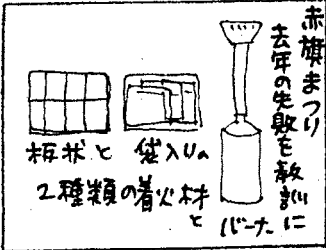 赤旗まつり
去年の失敗を教訓に
板状と
袋入りの
2種類の着火材
と
バーナー